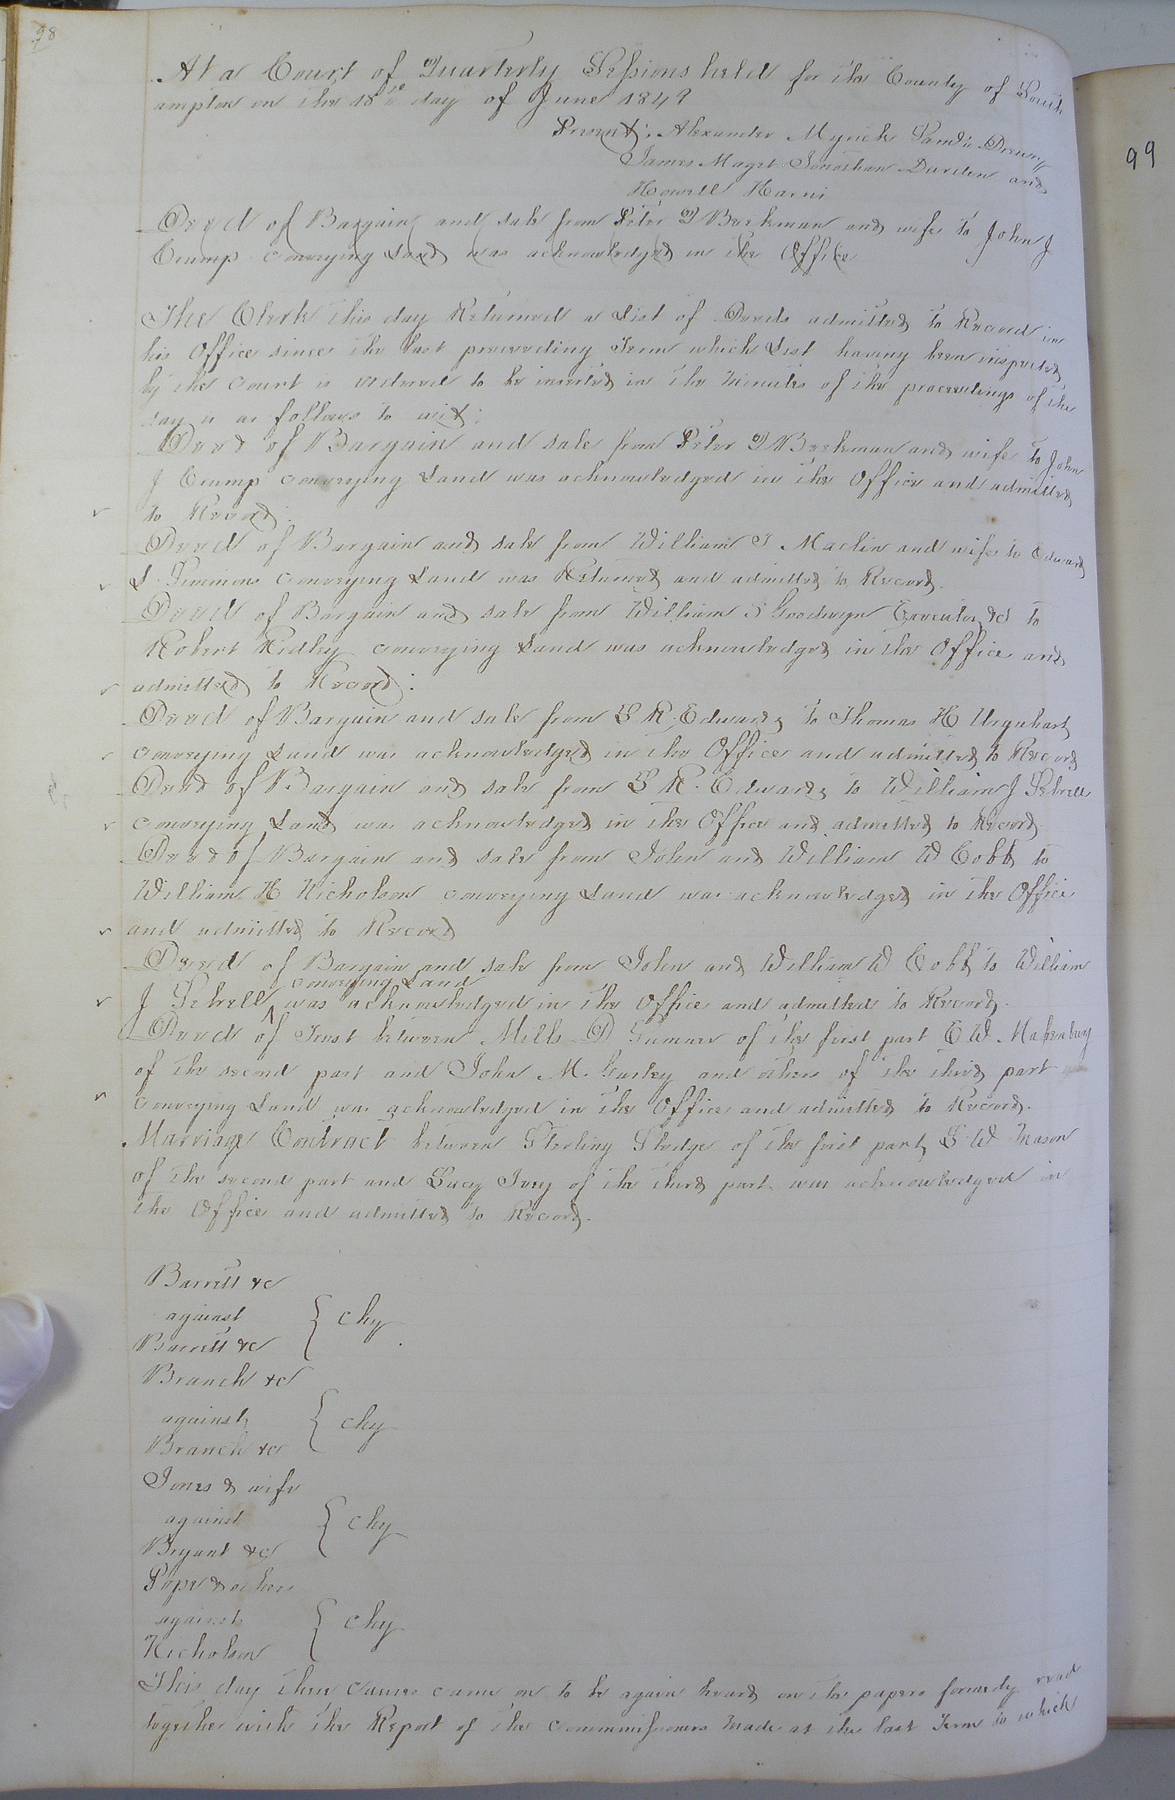 98
At a Court of Quarterly Sessions held for the County of South
ampton on the 18th day of June 1849
Present: Alexander Myrick Saml D Drewry
James Maget Jonathan Darden and
Howell Harris
Deed of Bargain and sale from Peter D Beekman and wife to John J
Crump conveying Land was acknowledged in the Office
The Clerk this day Returned a List of Deeds admitted to Record in
his Office since the last preceeding Term which List having been inspected
by the Court is ordered to be inserted in the minutes of the proceedings of the
day is as follows to wit:
Deed of Bargain and sale from Peter D Beekman and wife to John
J Crump conveying Land was acknowledged in the Office and admitted
to Record.
Deed of Bargain and sale from William T Maclin and wife to Edward
S. Simmons conveying Land was Returned and admitted to Record.
Deed of Bargain and sale from William S Goodwyn Executor &c to
Robert Ridley conveying Land was acknowledged in the Office and
admitted to Record:
Deed of Bargain and sale from S R. Edwards to Thomas H Urquhart
conveying Land was acknowledged in the Office and admitted to Record
Deed of Bargain and sale from S R. Edwards to William J Sebrell
conveying Land was acknowledged in the Office and admitted to Record
Deed of Bargain and sale from John and William W Cobb to
William H Nicholson conveying Land was acknowledged in the Office
and admitted to Record
Deed of Bargain and sale from John and William W Cobb to William
conveying Land
J Sebrell was acknowledged in the Office and admitted to Record.
Deed of Trust between Mills D Gumner of the first part E W Massenburg
of the second part and John M. Gurley and others of the third part
conveying Land was acknowledged in the Office and admitted to Record.
Marriage Contract between Sterling Sledge of the first part, S W Mason
of the second part and Lucy Ivey of the third part was acknowledged in
the Office and admitted to Record.
Barrett &c
against } Chy
Barrett &c
Branch &c
against } Chy
Branch &c
Jones & wife
against } Chy
Bryant &c
Pope & others
against } Chy
Nicholson
This day these causes came on to be again heard on the papers formerly read
together with the Report of the Commissioners made at the last Term to which
99